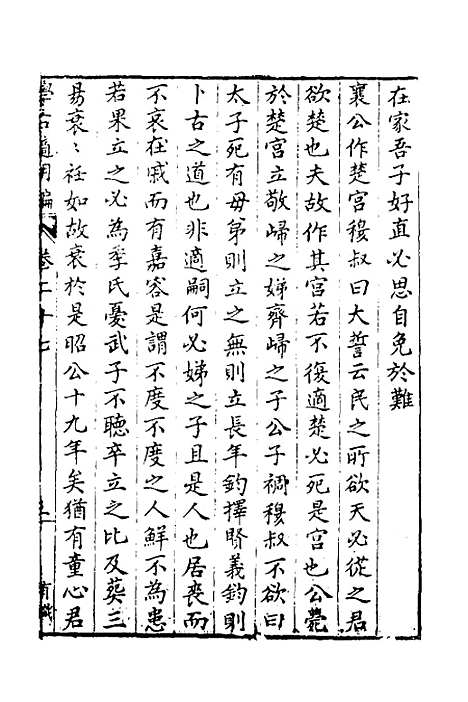 在家吾子好直必思自免於難
襄公作楚宮穆叔曰大誓云民之所欲天必從之君
欲楚也夫故作其宮若不復適楚必死是宮也公薨
於楚宮立敬歸之娣齊歸之子公子裯穆叔不欲曰
太子死有母弟則立之無則立長年鈞擇賢義鈞則
卜古之道也非適嗣何必娣之子且是人也居喪而
不哀在戚而有嘉容是謂不度不度之人鮮不為患
若果立之必為季氏憂武子不聽卒立之比及葬三
易衰〻衽如故衰於是昭公十九年矣猶有童心君
學古適用編 卷二十七